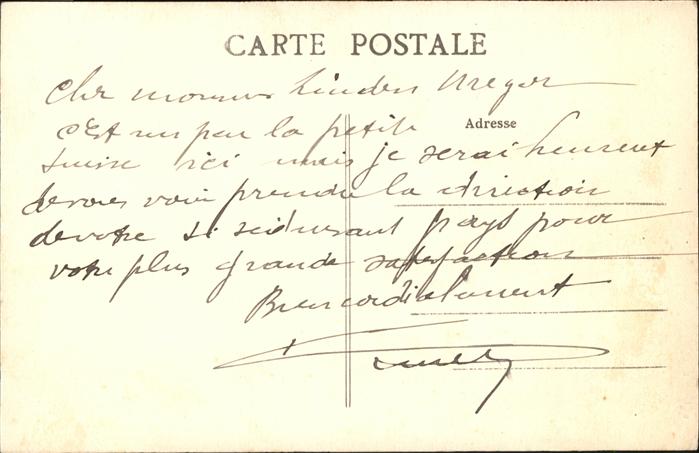 CARTE POSTALE
Cher monsieur Linden
c'est un peu la petite
Adresse
suisse ici mais je serai heureux
de vous voir prendre la direction
de votre si séduisant pays pour
votre plus grande satisfaction
Bien cordialement